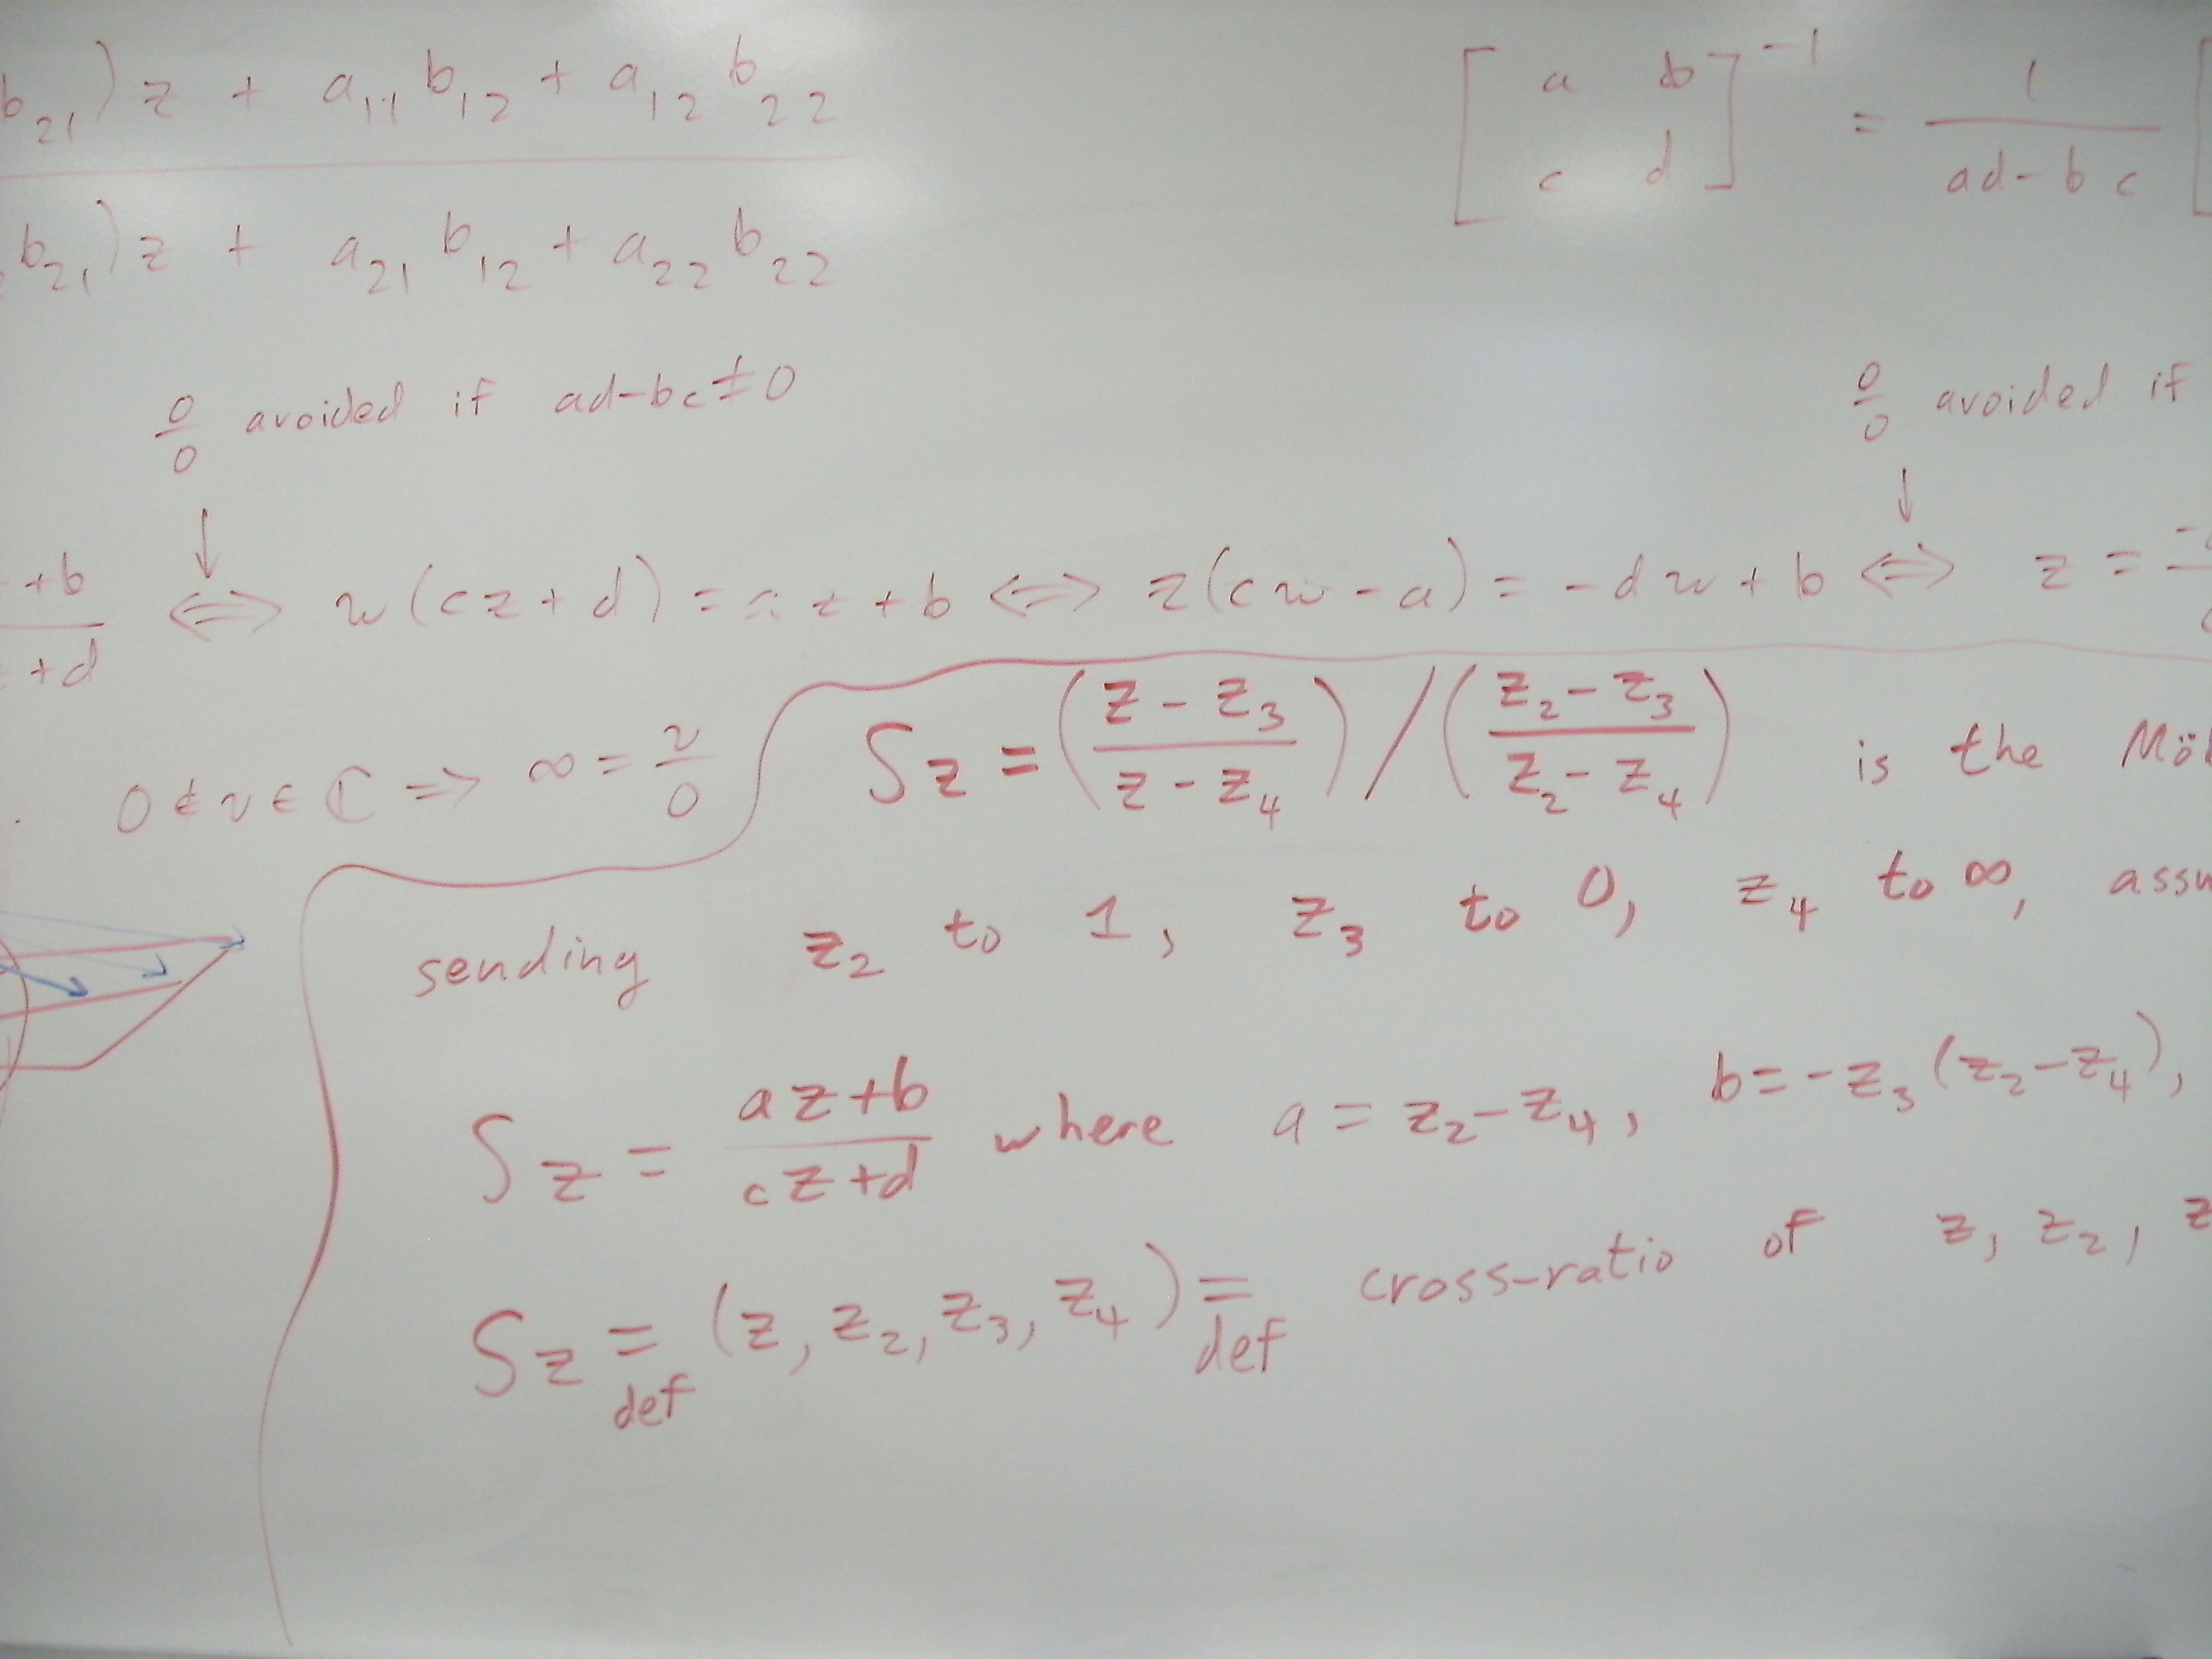 b₂₁)z + a₁₁b₁₂ + a₁₂b₂₂
b₂₁)z + a₂₁b₁₂ + a₂₂b₂₂
[a b
c d]⁻¹ = 1/(ad-bc) [
0/0 avoided if ad-bc≠0
0/0 avoided if
↓
↓
+b/+d ⇔ w(cz+d) = az+b ⇔ z(cw-a) = -dw+b ⇔ z = -
0 ≠ v ∈ ℂ ⇒ ∞ = v/0
Sz = ((z-z₃)/(z-z₄))/((z₂-z₃)/(z₂-z₄)) is the Möb
sending z₂ to 1, z₃ to 0, z₄ to ∞, assu
Sz = (az+b)/(cz+d) where a = z₂-z₄, b = -z₃(z₂-z₄),
Sz =def (z, z₂, z₃, z₄) =def cross-ratio of z, z₂, z